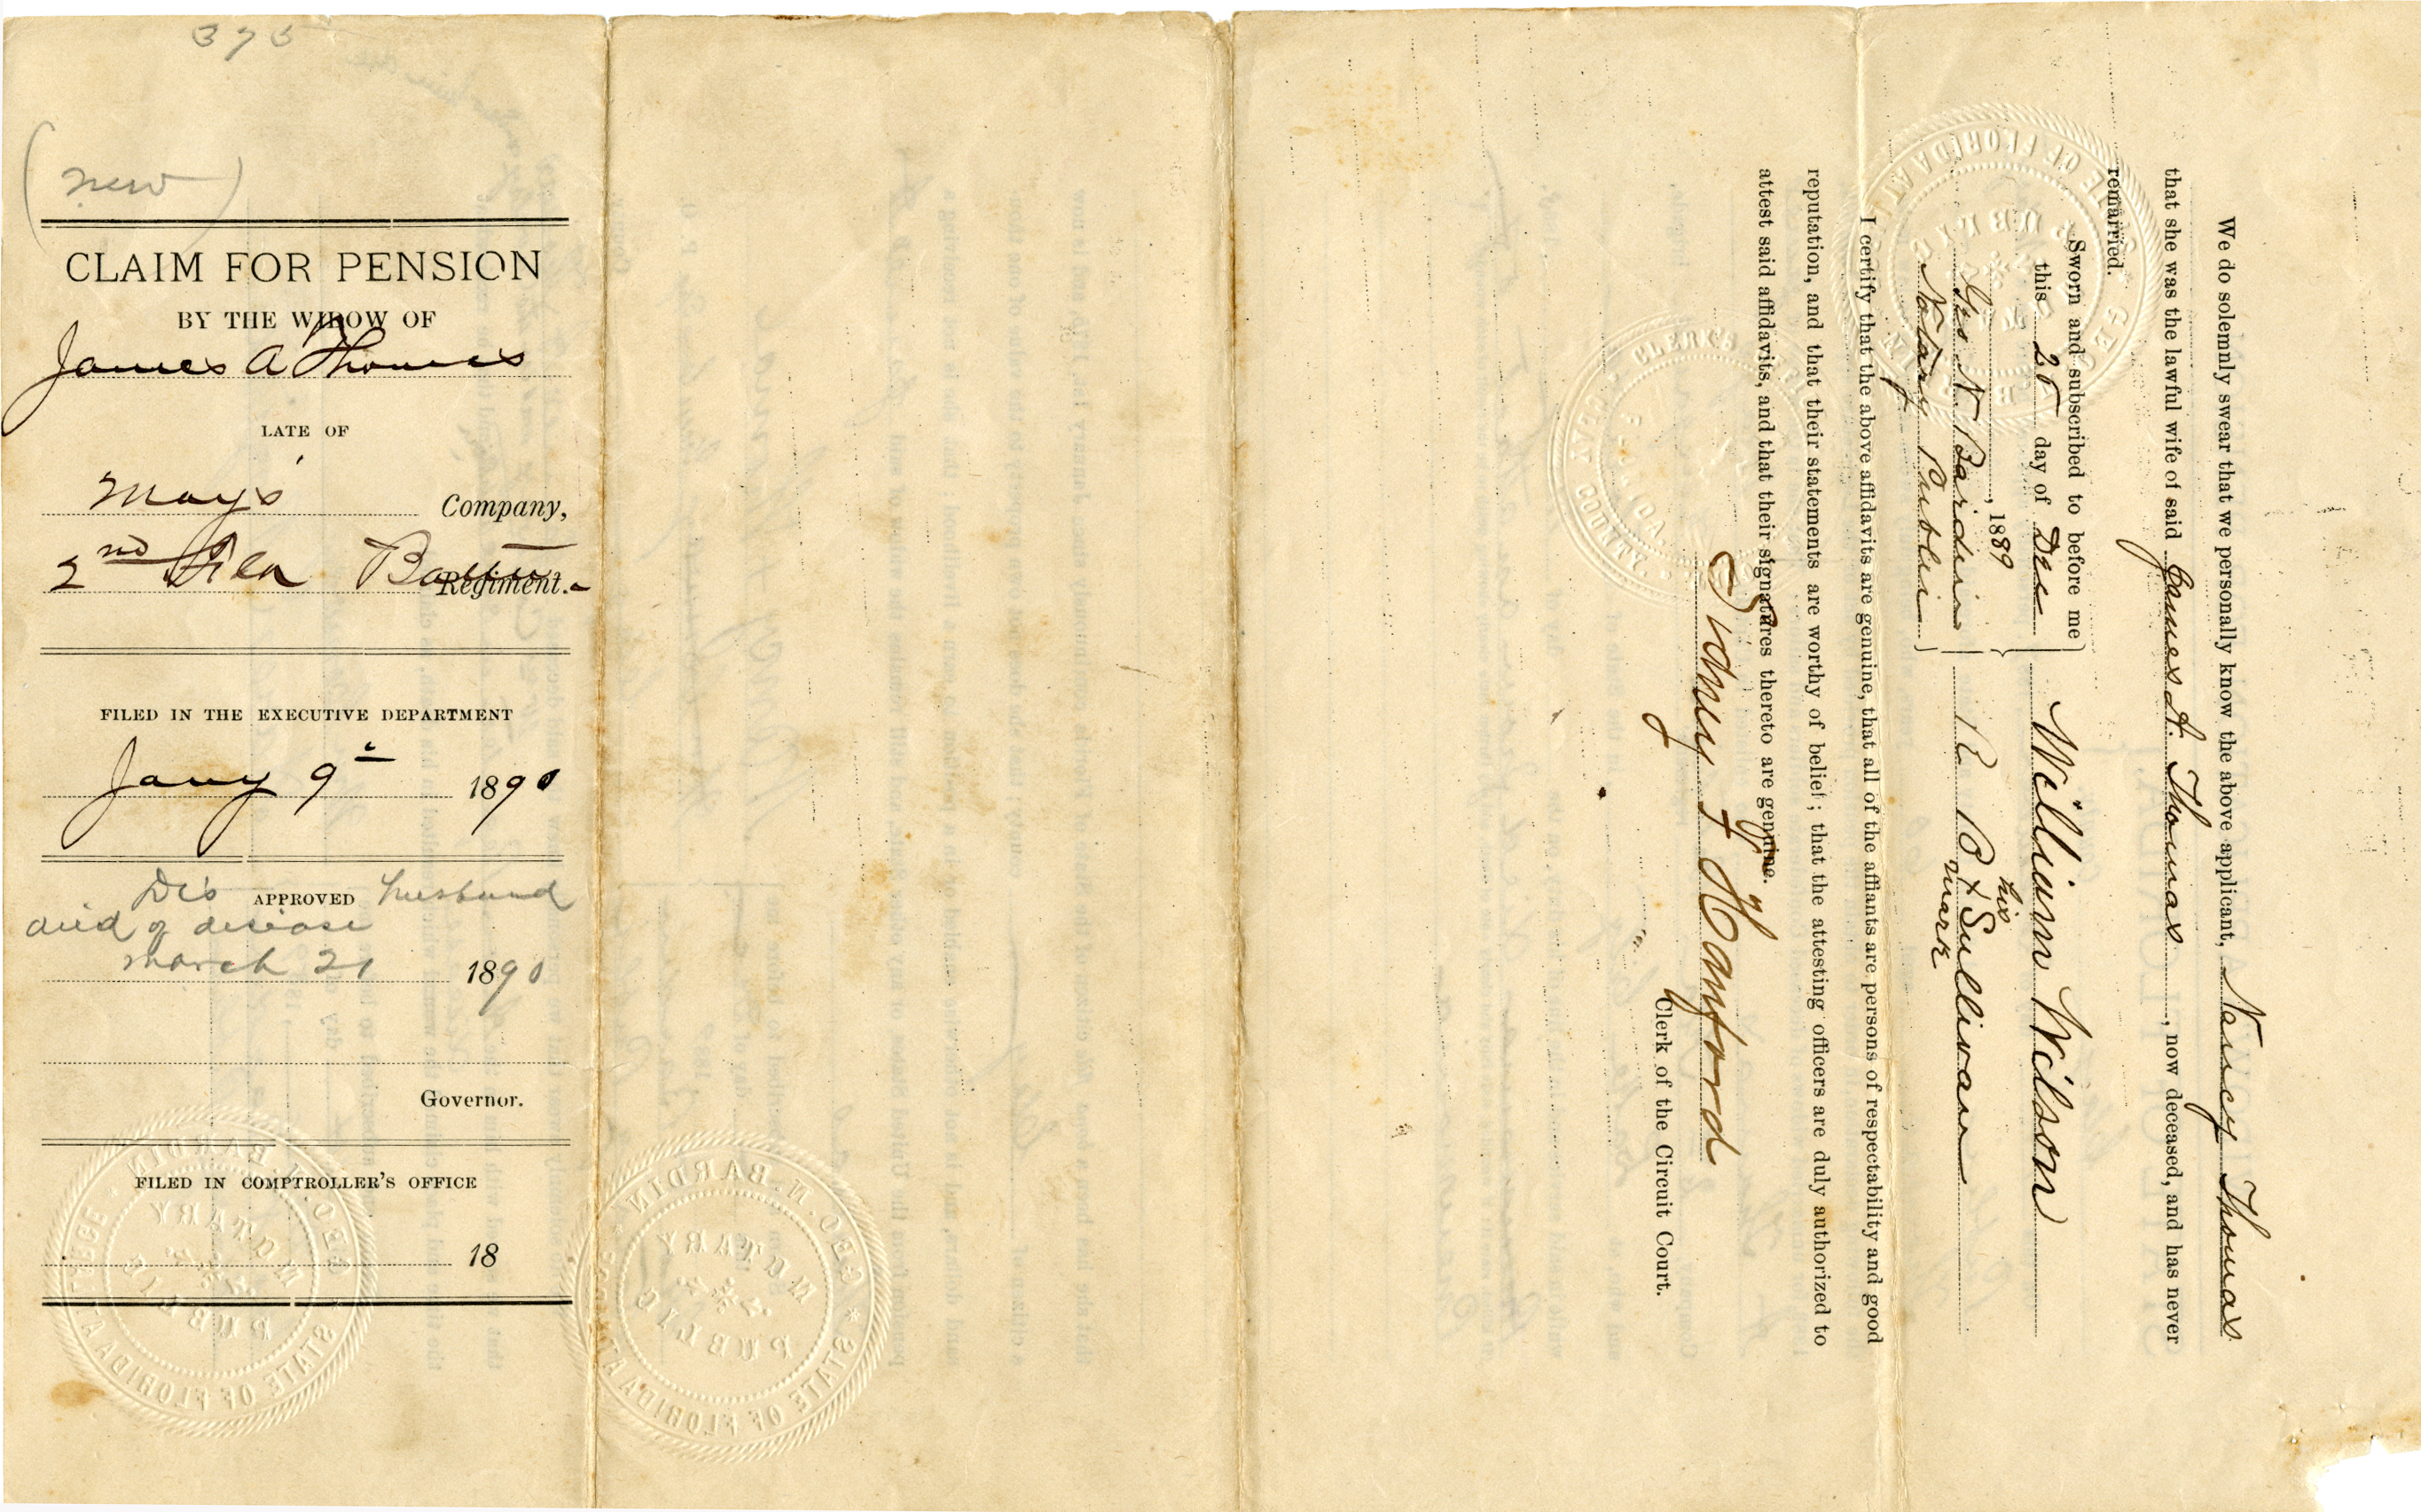 375
(new)
CLAIM FOR PENSION
BY THE WIDOW OF
James A Thomas
LATE OF
Mays' Company,
2nd Fla Battn Regiment.
FILED IN THE EXECUTIVE DEPARTMENT
Jany 9th 1890
Dis APPROVED husband
died of disease
march 21 1890
Governor.
FILED IN COMPTROLLER'S OFFICE
18
GEO. N. BARDIN * STATE OF FLORIDA AT
NOTARY
PUBLIC
GEO. N. BARDIN * STATE OF FLORIDA AT
NOTARY
PUBLIC
We do solemnly swear that we personally know the above applicant, Nancy Thomas
that she was the lawful wife of said James A. Thomas, now deceased, and has never
remarried.
Sworn and subscribed to before me
this 25 day of Dec
, 1889
Geo. N. Bardin
Notary Public
William Wilson
his
R B X Sullivan
mark
I certify that the above affidavits are genuine, that all of the affiants are persons of respectability and good
reputation, and that their statements are worthy of belief; that the attesting officers are duly authorized to
attest said affidavits, and that their signatures thereto are genuine.
Sidney
Clerk of the Circuit Court.
CLERK'S
COUNTY.
STATE OF FLORIDA AT
PUBLIC